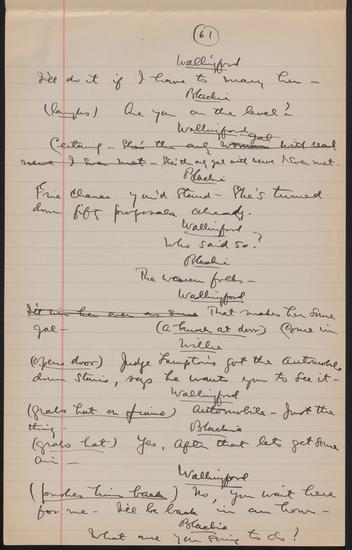 (61)
Wallingford
I'll do it if I have to marry her —
Blackie
(laughs) Are you on the level?
Wallingford
gal
Certainly — She's the only woman with real
nerve I ever met — She's the only gal with nerve I ever met.
Blackie
Fine chance you'd stand — She's turned
down fifty proposals already.
Wallingford
Who said so?
Blackie
The women folks —
Wallingford
I'll win her even as some That makes her some
gal — (a knock at door) Come in
Willie
(opens door) Judge Lampton's got the automobile
down stairs, says he wants you to see it —
Wallingford
(grabs hat on piano) Automobile — Just the
thing — Blackie
(grabs hat) Yes, after that lets get some
air —
Wallingford
(pushes him back) No, you wait here
for me — I'll be back in an hour —
Blackie
What are you going to do?